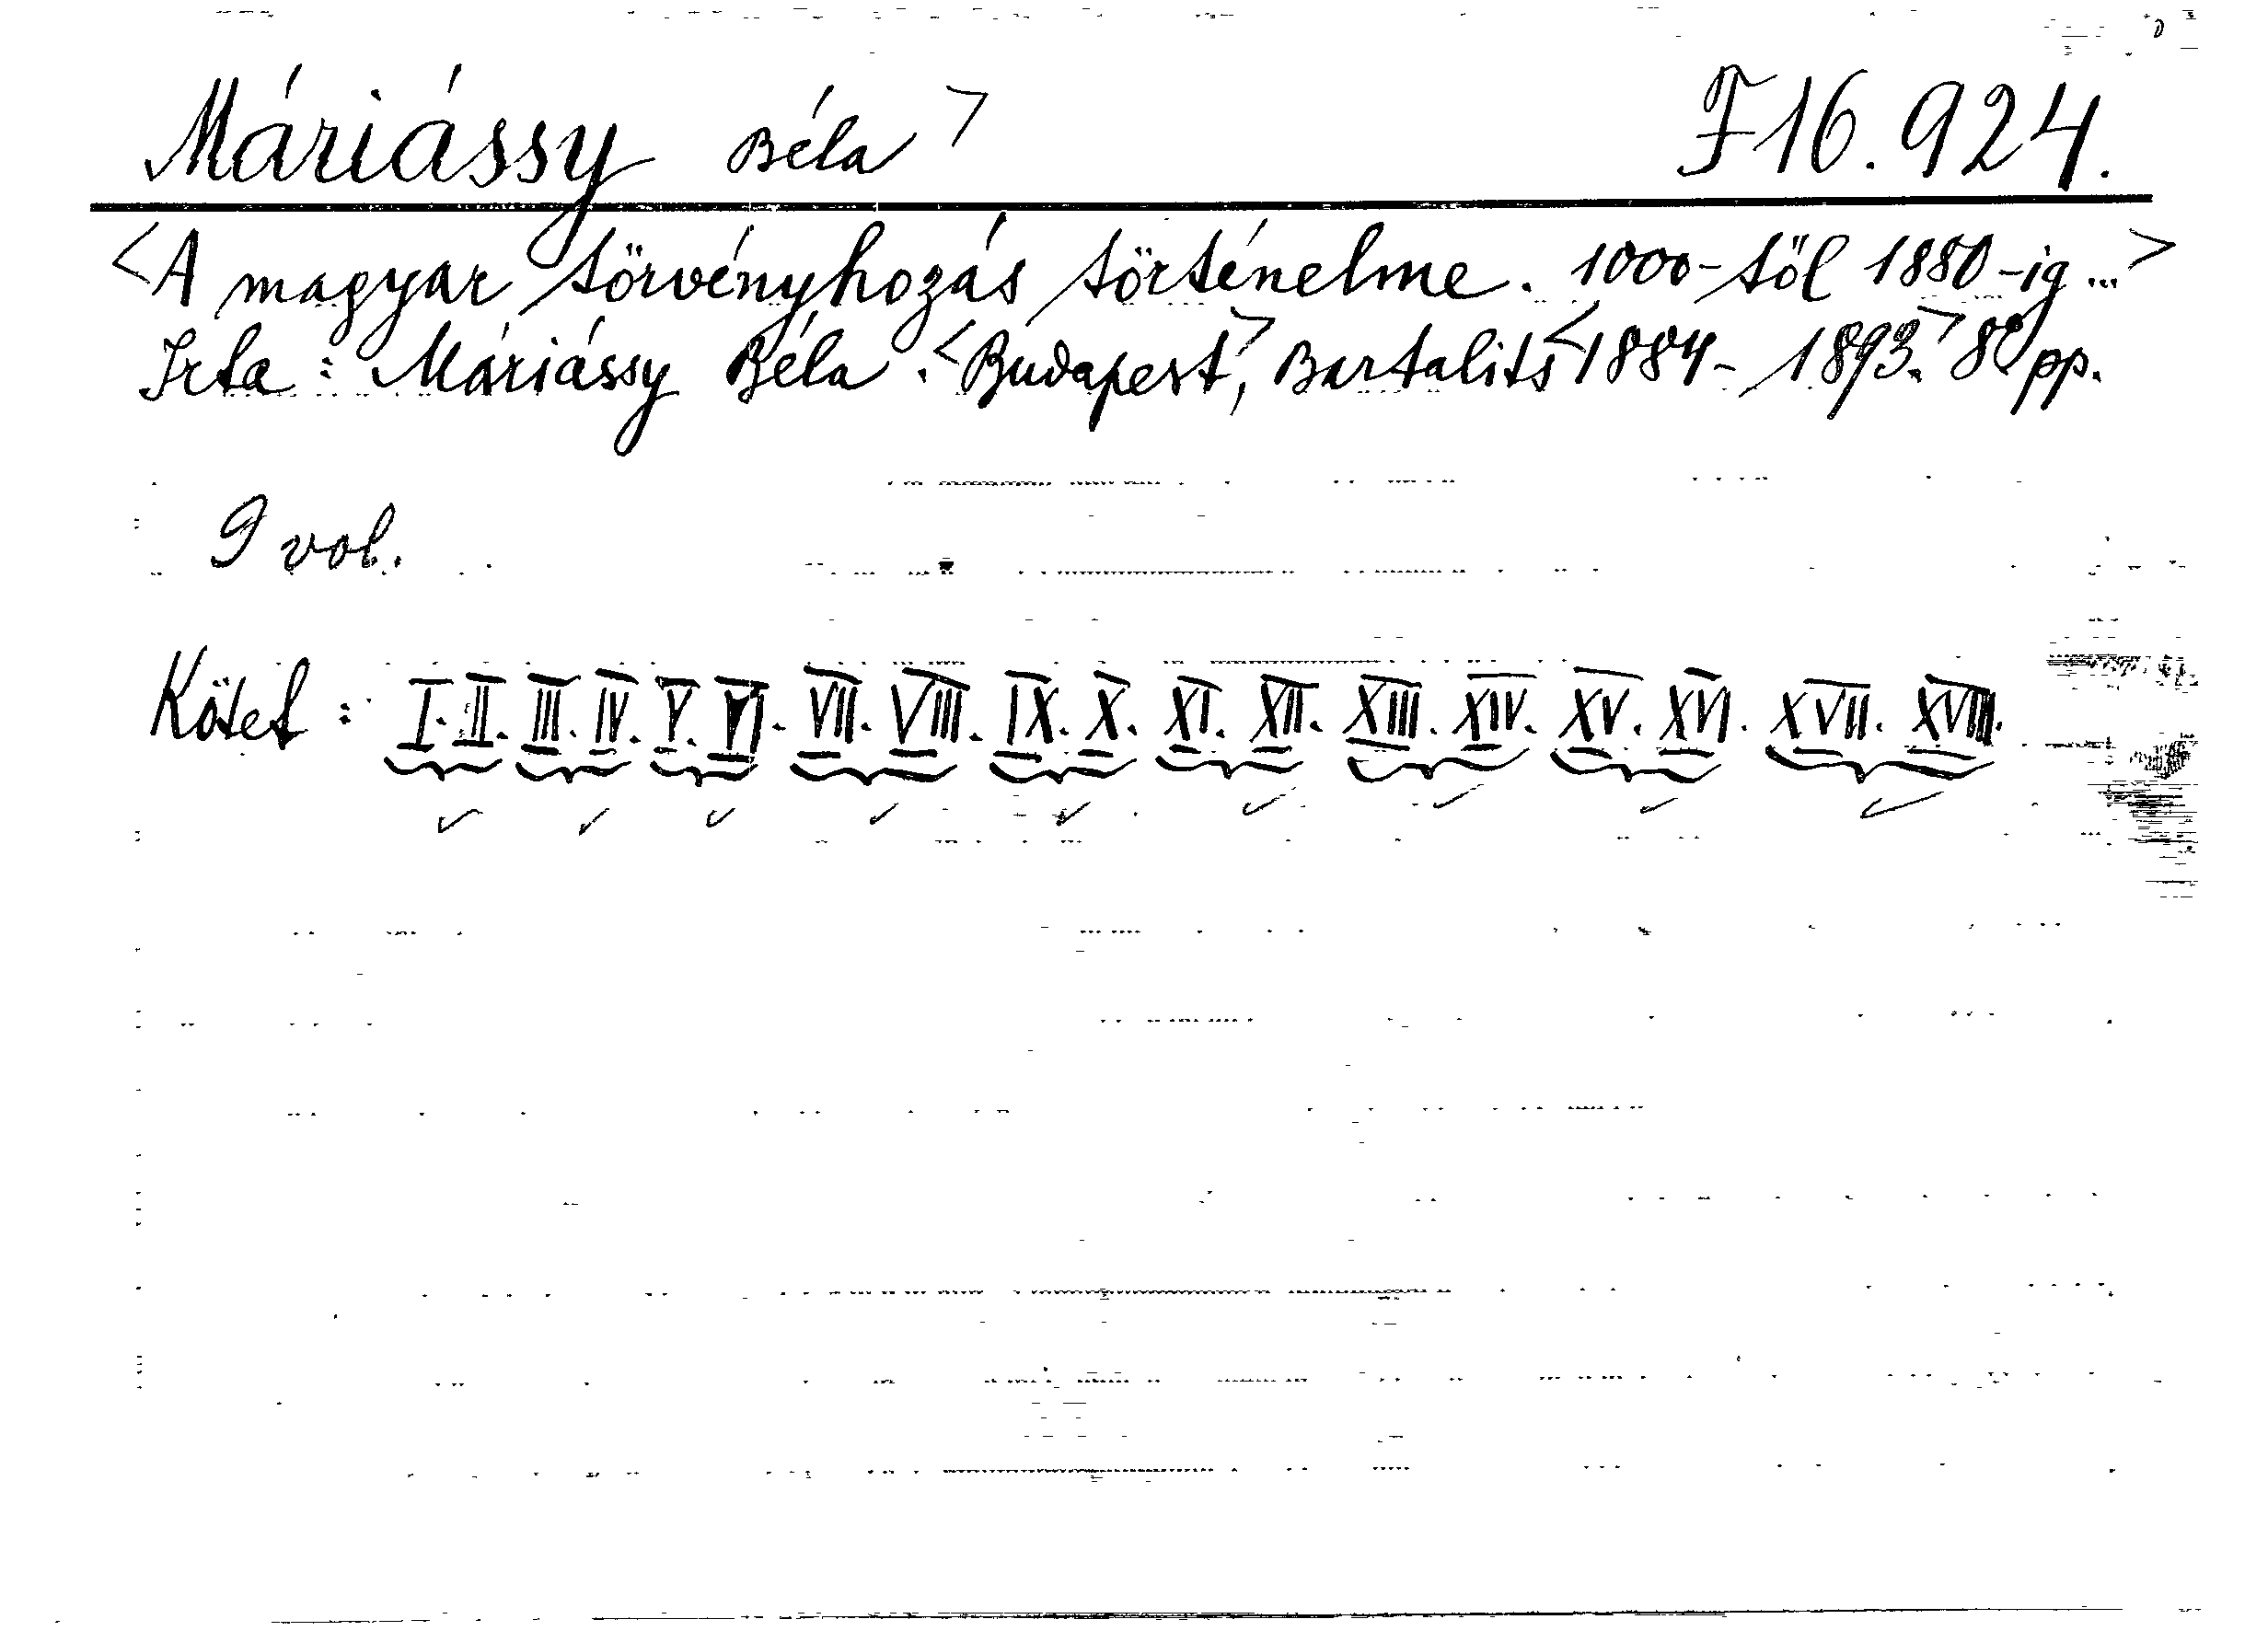 Máriássy Béla > F 16.924.
<A magyar törvényhozás történelme. 1000-től 1880-ig ...>
Irta: Máriássy Béla. <Budapest>, Bartalits <1884-1893.> 8° pp.
9 vol.
Kötet: I. II. III. IV. V. VI. VII. VIII. IX. X. XI. XII. XIII. XIV. XV. XVI. XVII. XVIII.